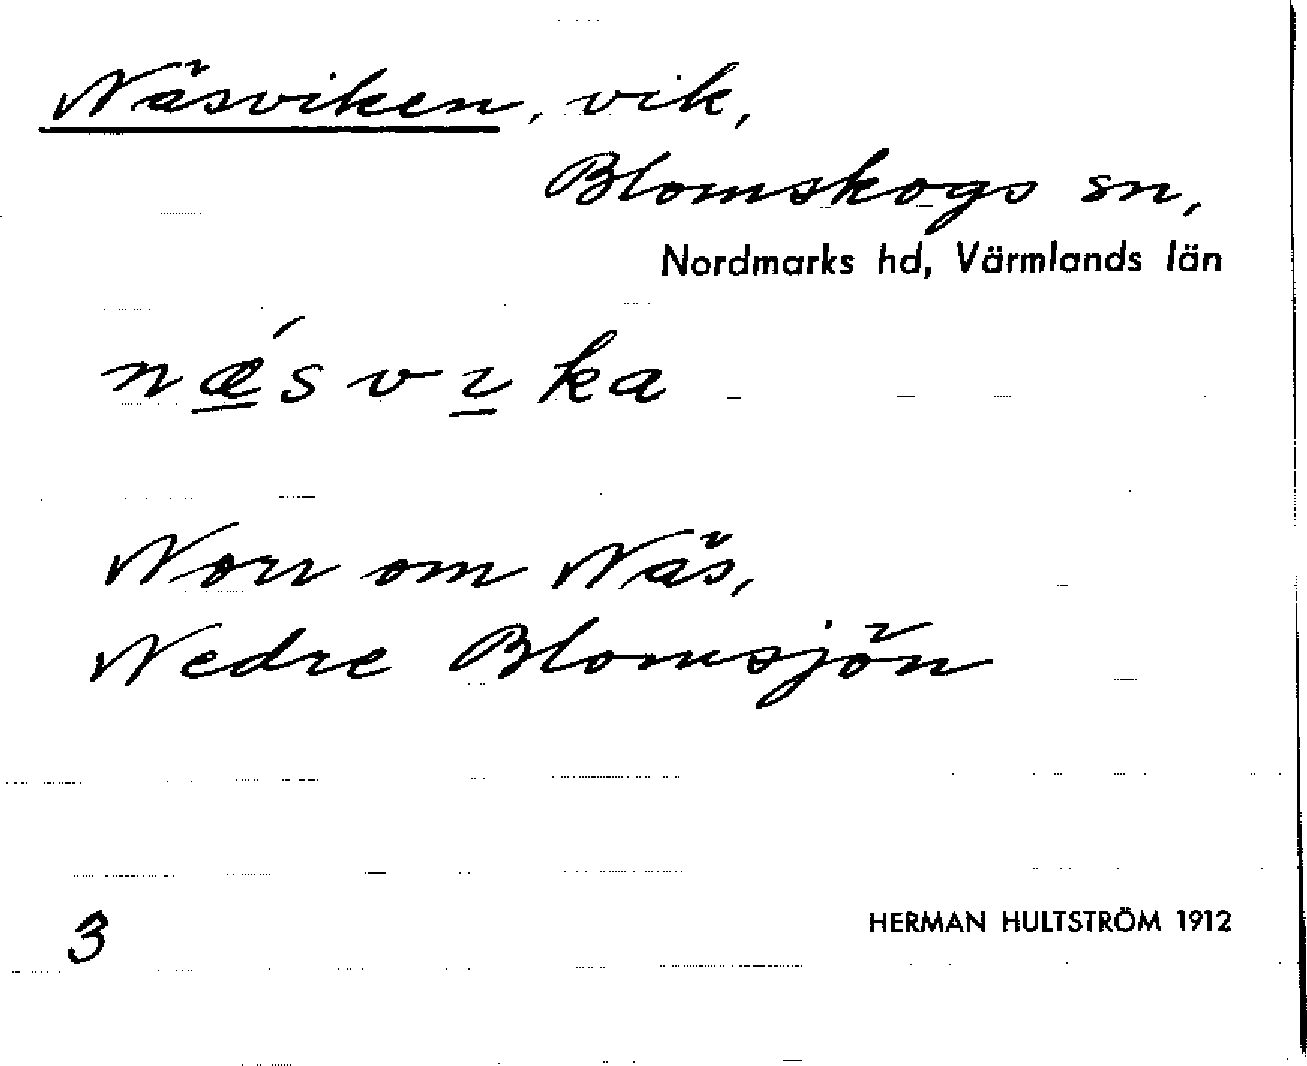 Näsviken, vik,
Blomskogs sn,
Nordmarks hd, Värmlands län
nǽ̲svɪ̲ka
Norr om Näs,
Nedre Blomsjön
3
HERMAN HULTSTRÖM 1912